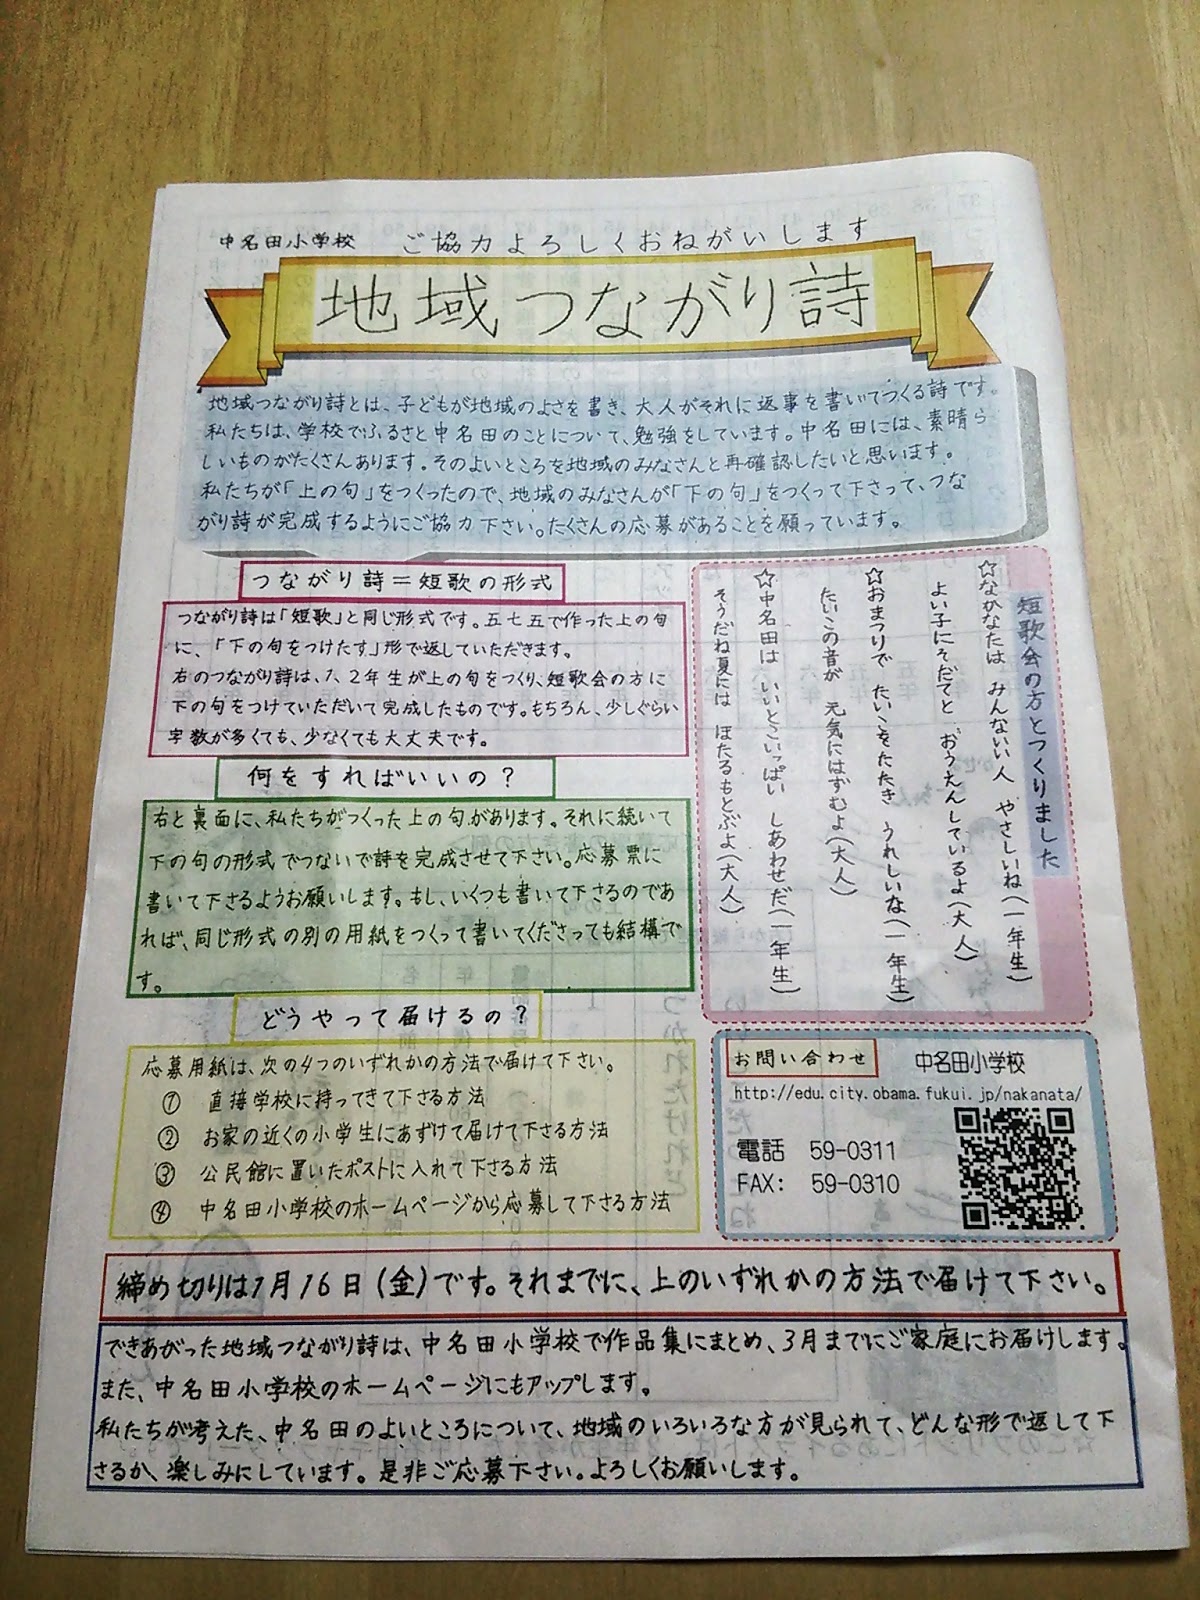 中名田小学校　ご協力よろしくおねがいします
地域つながり詩
地域つながり詩とは、子どもが地域のよさを書き、大人がそれに返事を書いてつくる詩です。
私たちは、学校でふるさと中名田のことについて、勉強をしています。中名田には、素晴ら
しいものがたくさんあります。そのよいところを地域のみなさんと再確認したいと思います。
私たちが「上の句」をつくったので、地域のみなさんが「下の句」をつくって下さって、つな
がり詩が完成するようにご協力下さい。たくさんの応募があることを願っています。
つながり詩＝短歌の形式
つながり詩は「短歌」と同じ形式です。五七五で作った上の句
に、「下の句をつけたす」形で返していただきます。
右のつながり詩は、1、2年生が上の句をつくり、短歌会の方に
下の句をつけていただいて完成したものです。もちろん、少しぐらい
字数が多くても、少なくても大丈夫です。
短歌会の方とつくりました
☆なかなたは　みんないい人　やさしいね（一年生）
よい子にそだてと　おうえんしているよ（大人）
☆おまつりで　たいこをたたき　うれしいな（一年生）
たいこの音が　元気にはずむよ（大人）
☆中名田は　いいとこいっぱい　しあわせだ（一年生）
そうだね夏には　ほたるもとぶよ（大人）
何をすればいいの？
右と裏面に、私たちがつくった上の句があります。それに続いて
下の句の形式でつないで詩を完成させて下さい。応募票に
書いて下さるようお願いします。もし、いくつも書いて下さるのであ
れば、同じ形式の別の用紙をつくって書いてくださっても結構で
す。
どうやって届けるの？
応募用紙は、次の4つのいずれかの方法で届けて下さい。
①　直接学校に持ってきて下さる方法
②　お家の近くの小学生にあずけて届けて下さる方法
③　公民館に置いたポストに入れて下さる方法
④　中名田小学校のホームページから応募して下さる方法
お問い合わせ　中名田小学校
http://edu.city.obama.fukui.jp/nakanata/
電話　59-0311
FAX:　59-0310
締め切りは1月16日（金）です。それまでに、上のいずれかの方法で届けて下さい。
できあがった地域つながり詩は、中名田小学校で作品集にまとめ、3月までにご家庭にお届けします。
また、中名田小学校のホームページにもアップします。
私たちが考えた、中名田のよいところについて、地域のいろいろな方が見られて、どんな形で返して下
さるか、楽しみにしています。是非ご応募下さい。よろしくお願いします。